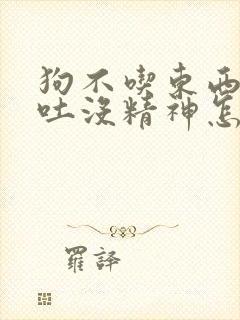 狗不喫東西
吐沒精神怎
羅譯